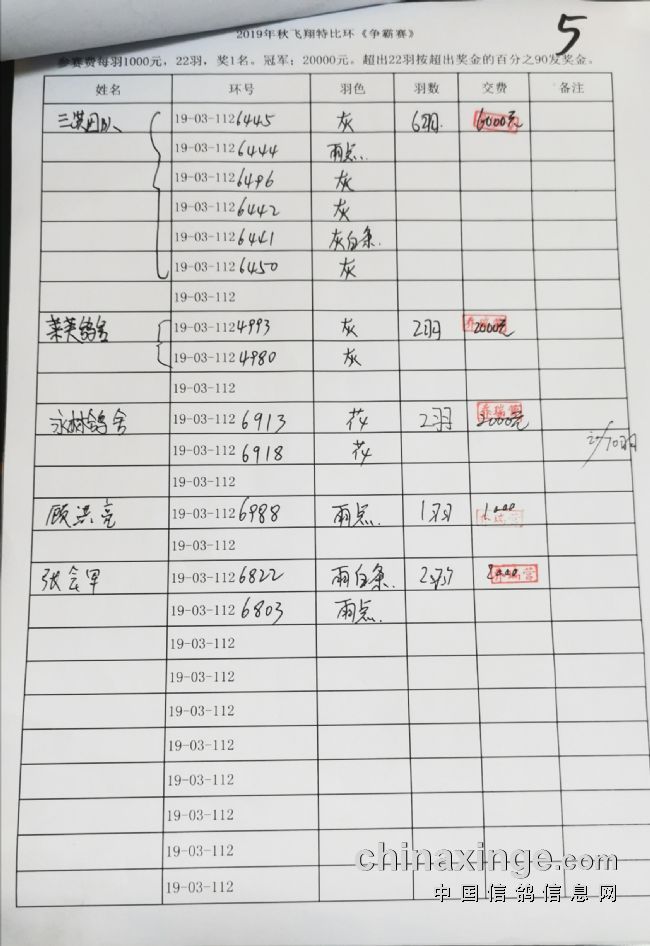 5
2019年秋飞翔特比环《争霸赛》
参赛费每羽1000元，22羽，奖1名。冠军：20000元。超出22羽按超出奖金的百分之90发奖金。
姓名 环号 羽色 羽数 交费 备注
19-03-112 6445 灰 6羽 6000元
19-03-112 6444 雨点
19-03-112 6496 灰
19-03-112 6442 灰
19-03-112 6441 灰白条
19-03-112 6450 灰
19-03-112
鸽舍 19-03-112 4993 灰 2羽 2000元
19-03-112 4980 灰
19-03-112
永林鸽舍 19-03-112 6913 花 2羽 2000元
19-03-112 6918 花
19-03-112
顾洪亮 19-03-112 6988 雨点 1羽 1000
19-03-112
张会军 19-03-112 6822 雨白条 2羽 2000
19-03-112 6803 雨点
19-03-112
19-03-112
19-03-112
19-03-112
19-03-112
19-03-112
19-03-112
19-03-112
chinaxinge.com
中国信鸽信息网